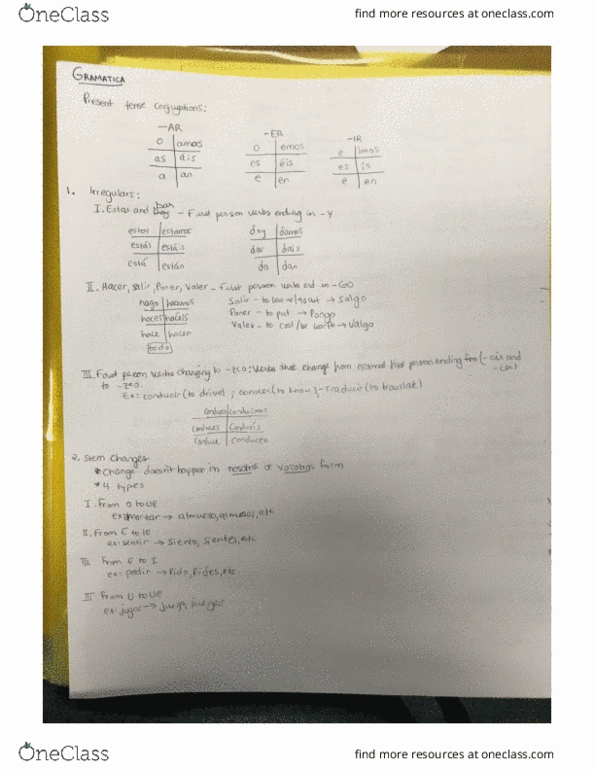 OneClass
find more resources at oneclass.com
GRAMATICA
Present tense conjugations:
-AR
o amos
as áis
a an
-ER
o emos
es éis
e en
-IR
e imos
es ís
e en
1. Irregulars:
I. Estar and Dar - First person verbs ending in -Y
estoy estamos
estás estáis
está están
doy damos
das dais
da dan
II. Hacer, salir, Poner, Valer - First person verbs end in -GO
hago hacemos
haces hacéis
hace hacen
todo
Salir - to leave/go out → Salgo
Poner - to put → Pongo
Valer - to cost/be worth → Valgo
III. First person verbs changing to -zco: Verbs that change from normal first person ending
to -zco.
Ex: conducir (to drive); conocer (to know); Traducir (to translate)
conducimos
Conduces Conducís
Conduce Conducen
2. Stem Changes
*Change doesn't happen in nosotros or vosotros form
*4 types
I. From O to UE
ex: → almuerzo, almuerzas, etc
II. From E to IE
ex: sentir → Siento, Sientes, etc
III From E to I
ex: pedir → Pido, Pides, etc
From U to UE
ex: jugar → Juego, juegas
OneClass
find more resources at oneclass.com